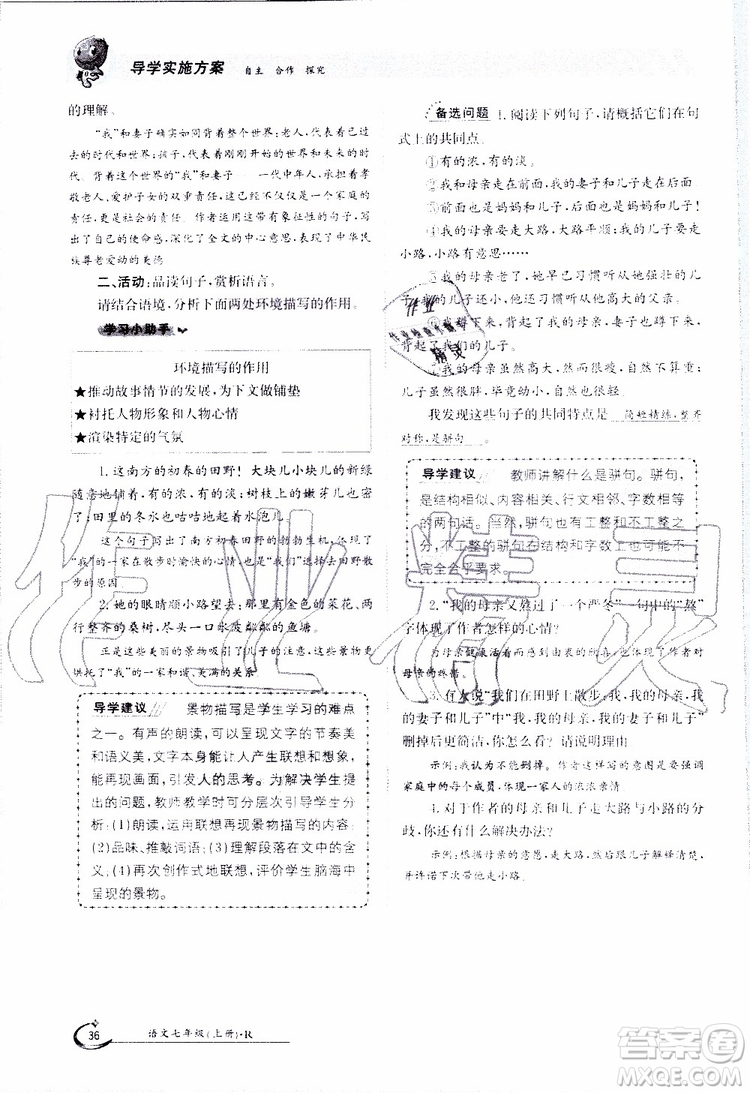 导学实施方案 自主 合作 探究
的理解。
“我”和妻子确实如同背着整个世界:老人,代表着过
去的时代和世界;孩子,代表着刚刚开始和未来的时
代。背着整个世界的“我”和妻子——一代中年人,承担着
敬老人、爱护子女的双重责任,这不仅仅是一个家庭的
责任,更是社会的责任。作者运用这带有象征性的句子,写
出了自己的使命感,深化了全文的中心意思,表现了中华民
族尊老爱幼的美德
二、活动:品读句子,赏析语言。
请结合语境,分析下面两处环境描写的作用。
学习小助手
环境描写的作用
★推动故事情节的发展,为下文做铺垫
★衬托人物形象和人物心情
★渲染特定的气氛
1.这南方的初春的田野!大块儿小块儿的新绿
随意地铺着,有的浓,有的淡;树枝上的嫩芽儿也密
了;田里的冬水也咕咕地起着水泡儿
这个句子写出了南方初春田野的勃勃生机,表现了
“我”一家人在散步时愉快的心情;吸引了我们一家人到田野散
步。
2.她的眼睛顺小路望去:那里有金色的菜花、两
行整齐的桑树,尽头一口水波粼粼的鱼塘。
正是这些美丽的景物吸引了儿子的注意,这些景物更
烘托了“我”一家的和谐、美满的关系
导学建议 景物描写是学生学习的难点
之一。有声的朗读,可以呈现文字的节奏美
和语义美,文字本身能让人产生联想和想象,
能再现画面,引发人的思考。为解决学生提
出的问题,教师教学时可以做以下几个方面的
准备:(1)朗读,运用联想再现景物描写的内容;
(2)品味、推敲词语;(3)理解段落在文中的含
义;(4)再次创作式地联想,评价学生脑海中
呈现的景物。
备选问题 1.阅读下列句子,请概括它们在句
式上的共同点。
①有的浓,有的淡。
②我和母亲走在前面,我的妻子和儿子走在后面
③前面也是妈妈和儿子,后面也是妈妈和儿子。
④我的母亲要走大路,大路平顺;我的儿子要走
小路,小路有意思……
⑤我的母亲老了,她早已习惯听从她强壮的儿
子;我的儿子还小,他还习惯听从他高大的父亲。
⑥我蹲下来,背起了我的母亲;妻子也蹲下来,背
起了我们的儿子。
⑦我的母亲虽然高大,然而很瘦,自然不算重;
儿子虽然很胖,毕竟幼小,自然也轻。
我发现这些句子的共同特点是 简短精练,整齐
对称,是骈句 。
导学建议 教师讲解什么是骈句。骈句,
是结构相似、内容相关、行文相邻、字数相等
的两句话。当然,骈句也有工整和不工整之
分,不工整的骈句在结构和字数上不一定
完全合乎要求。
2.“我的母亲又熬过了一个严冬”一句中的“熬”
字体现了作者怎样的心情?
为母亲健康地活着而感到由衷的欣喜,表现了作者对
母亲的挚爱。
3.有人说“我们在田野上散步:我,我的母亲,我
的妻子和儿子”中“我,我的母亲,我的妻子和儿子”
删掉后更简洁,你怎么看?请说明理由
示例:我认为不能删掉。作者这样写的意图是要强调
家庭中的每个成员,体现一家人的浓浓亲情。
4.对于作者的母亲和儿子走大路与小路的分
歧,你还有什么解决办法?
示例:听从母亲的意愿,走大路,然后跟儿子解释清楚,
并许诺下次带他走小路。
36 语文七年级(上册)·R
作业精灵
答案圈
MXQE.COM